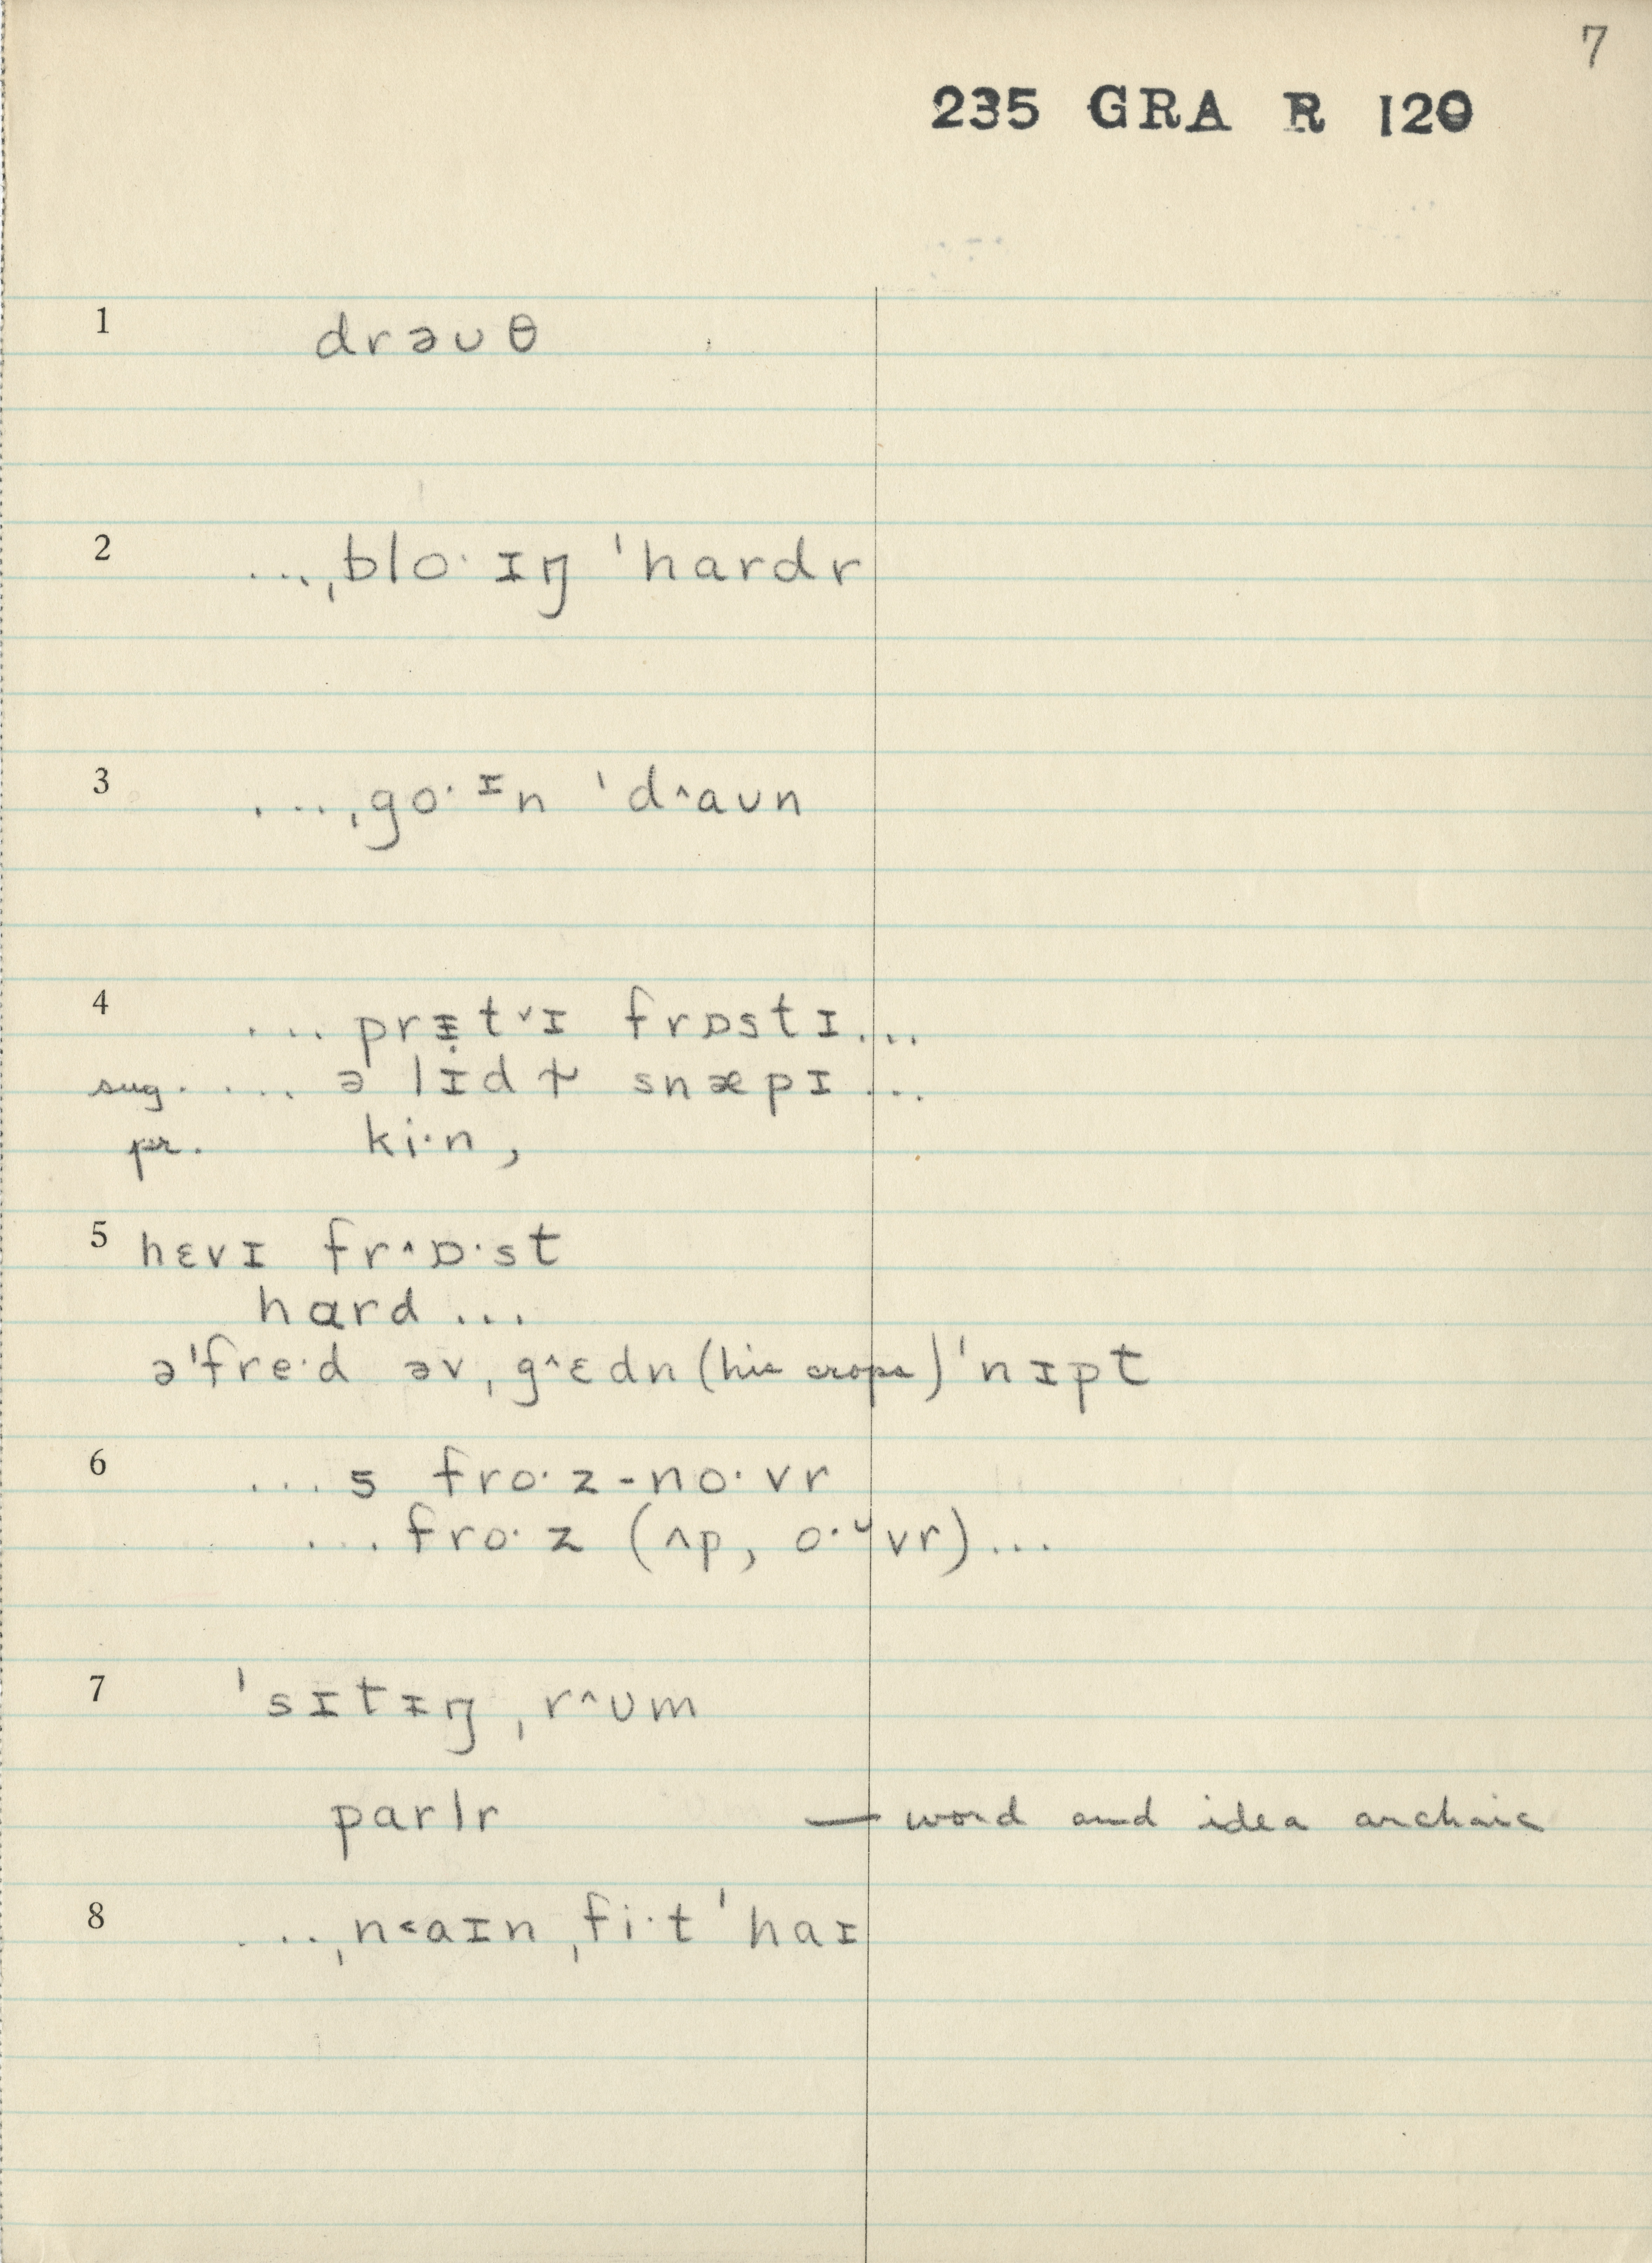 7
235 GRA R 120
1 drəuθ
2 ...ˌblo· ɪŋ ˈhardr
3 ...ˌgo· ᶦn ˈd^aun
4 ... prɪ̣t˅ɪ frɒstɪ...
sug. ... ə lɪ̣d ɫ snæpɪ ...
pr. ki·n,
5 hɛvɪ fr^ɒ·st
hard ...
əˈfre·d əv ˌg^ɛdn (his crops) ˈnɪpt
6 ... s fro·z-no·vr
... fro·z (ʌp, o·ᵘvr)...
7 ˈsɪtɪŋ ˌr^um
parlr — word and idea archaic
8 ...ˌn˂aɪn ˌfi·t ˈhaɪ